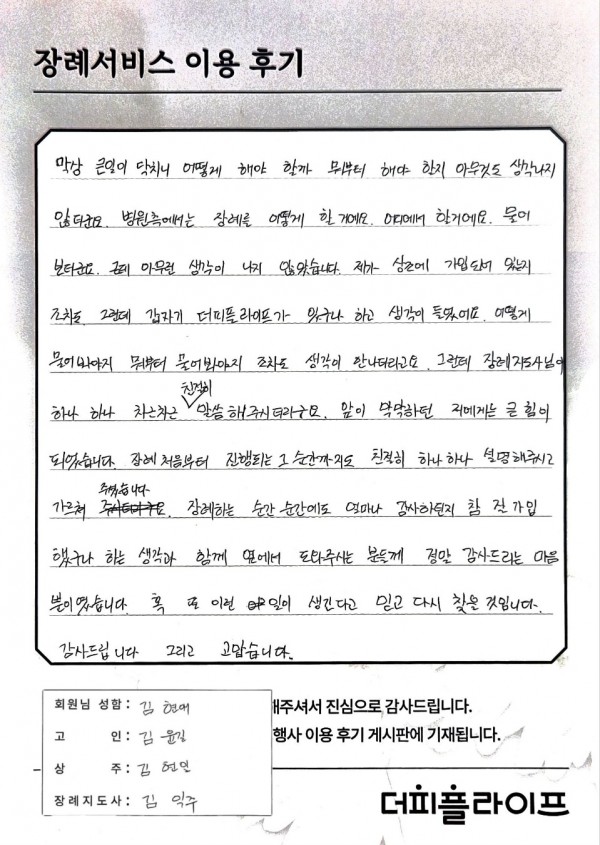 장례서비스 이용 후기
막상 큰일이 닥치니 어떻게 해야 할까 뭐부터 해야 한지 아무것도 생각나지
않더군요. 병원측에서는 장례를 어떻게 할거에요. 어디에서 할거에요. 물어
보더군요. 근데 아무런 생각이 나지 않았습니다. 제가 상조에 가입되어 있는지
조차도. 그런데 갑자기 더피플라이프가 있구나 하고 생각이 들었어요. 어떻게
물어봐야지 뭐부터 물어봐야지 조차도 생각이 안나더라고요. 그런데 장례지도사님이
친절히
하나 하나 차근차근 말씀해주시더라구요. 앞이 막막하던 저에게는 큰 힘이
되었습니다. 장례 처음부터 진행되는 그 순간까지도 친절히 하나하나 설명해주시고
주었습니다
가르쳐 주시더라구요. 장례하는 순간 순간에도 얼마나 감사하던지 참 잘 가입
했구나 하는 생각과 함께 옆에서 도와주시는 분들께 정말 감사드리는 마음
뿐이었습니다. 혹 또 이런 일이 생긴다고 믿고 다시 찾을것입니다.
감사드립니다 그리고 고맙습니다.
회원님 성함 : 김현애
고 인 : 김윤길
상 주 : 김현일
장례지도사 : 김익주
해주셔서 진심으로 감사드립니다.
행사 이용 후기 게시판에 기재됩니다.
더피플라이프